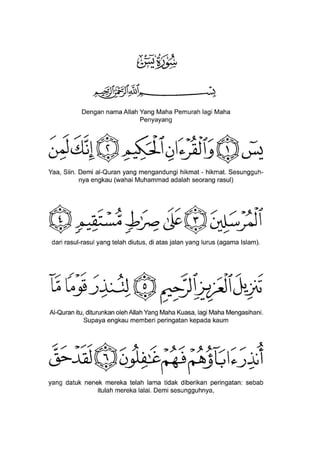 سُورَةُ يسٓ
بِسْمِ ٱللَّهِ ٱلرَّحْمَٰنِ ٱلرَّحِيمِ
Dengan nama Allah Yang Maha Pemurah lagi Maha
Penyayang
يسٓ ﴿١﴾ وَٱلْقُرْءَانِ ٱلْحَكِيمِ ﴿٢﴾ إِنَّكَ لَمِنَ
Yaa, Siin. Demi al-Quran yang mengandungi hikmat - hikmat. Sesungguh-
nya engkau (wahai Muhammad adalah seorang rasul)
ٱلْمُرْسَلِينَ ﴿٣﴾ عَلَىٰ صِرَٰطٍ مُّسْتَقِيمٍ ﴿٤﴾
dari rasul-rasul yang telah diutus, di atas jalan yang lurus (agama Islam).
تَنزِيلَ ٱلْعَزِيزِ ٱلرَّحِيمِ ﴿٥﴾ لِتُنذِرَ قَوْمًا مَّآ
Al-Quran itu, diturunkan oleh Allah Yang Maha Kuasa, lagi Maha Mengasihani.
Supaya engkau memberi peringatan kepada kaum
أُنذِرَ ءَابَآؤُهُمْ فَهُمْ غَٰفِلُونَ ﴿٦﴾ لَقَدْ حَقَّ
yang datuk nenek mereka telah lama tidak diberikan peringatan: sebab
itulah mereka lalai. Demi sesungguhnya,